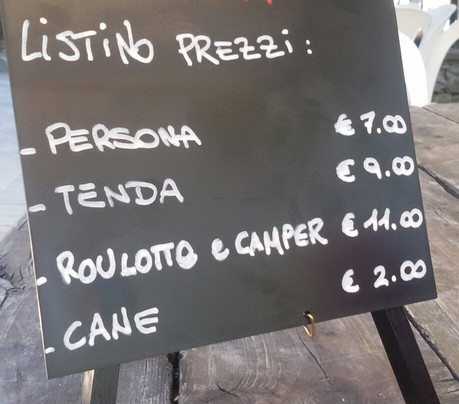 LISTINO PREZZI:
- PERSONA € 7.00
- TENDA € 9.00
- ROULOTTO e CAMPER € 11.00
- CANE € 2.00